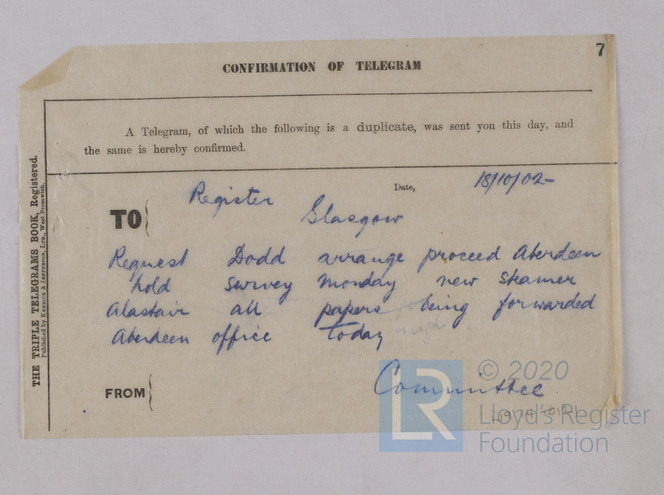 7
CONFIRMATION OF TELEGRAM
A Telegram, of which the following is a duplicate, was sent you this day, and
the same is hereby confirmed.
Date, 18/10/02-
TO Register Glasgow
Request Dodd arrange proceed Aberdeen
hold survey Monday new steamer
Alastair all papers being forwarded
Aberdeen office today
FROM Committee
THE TRIPLE TELEGRAMS BOOK, Registered.
LR
© 2020
Lloyd's Register
Foundation